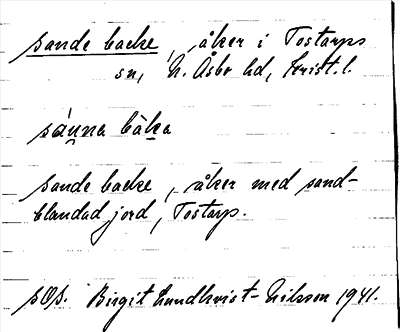 sande backe, åker i Tostarps
sn, N. Åsbo hd, Krist. l.
sánna bàka
sande backe, åker med sand-
blandad jord, Tostarp.
SOS. Birgit Lundkvist-Nilsson 1941.